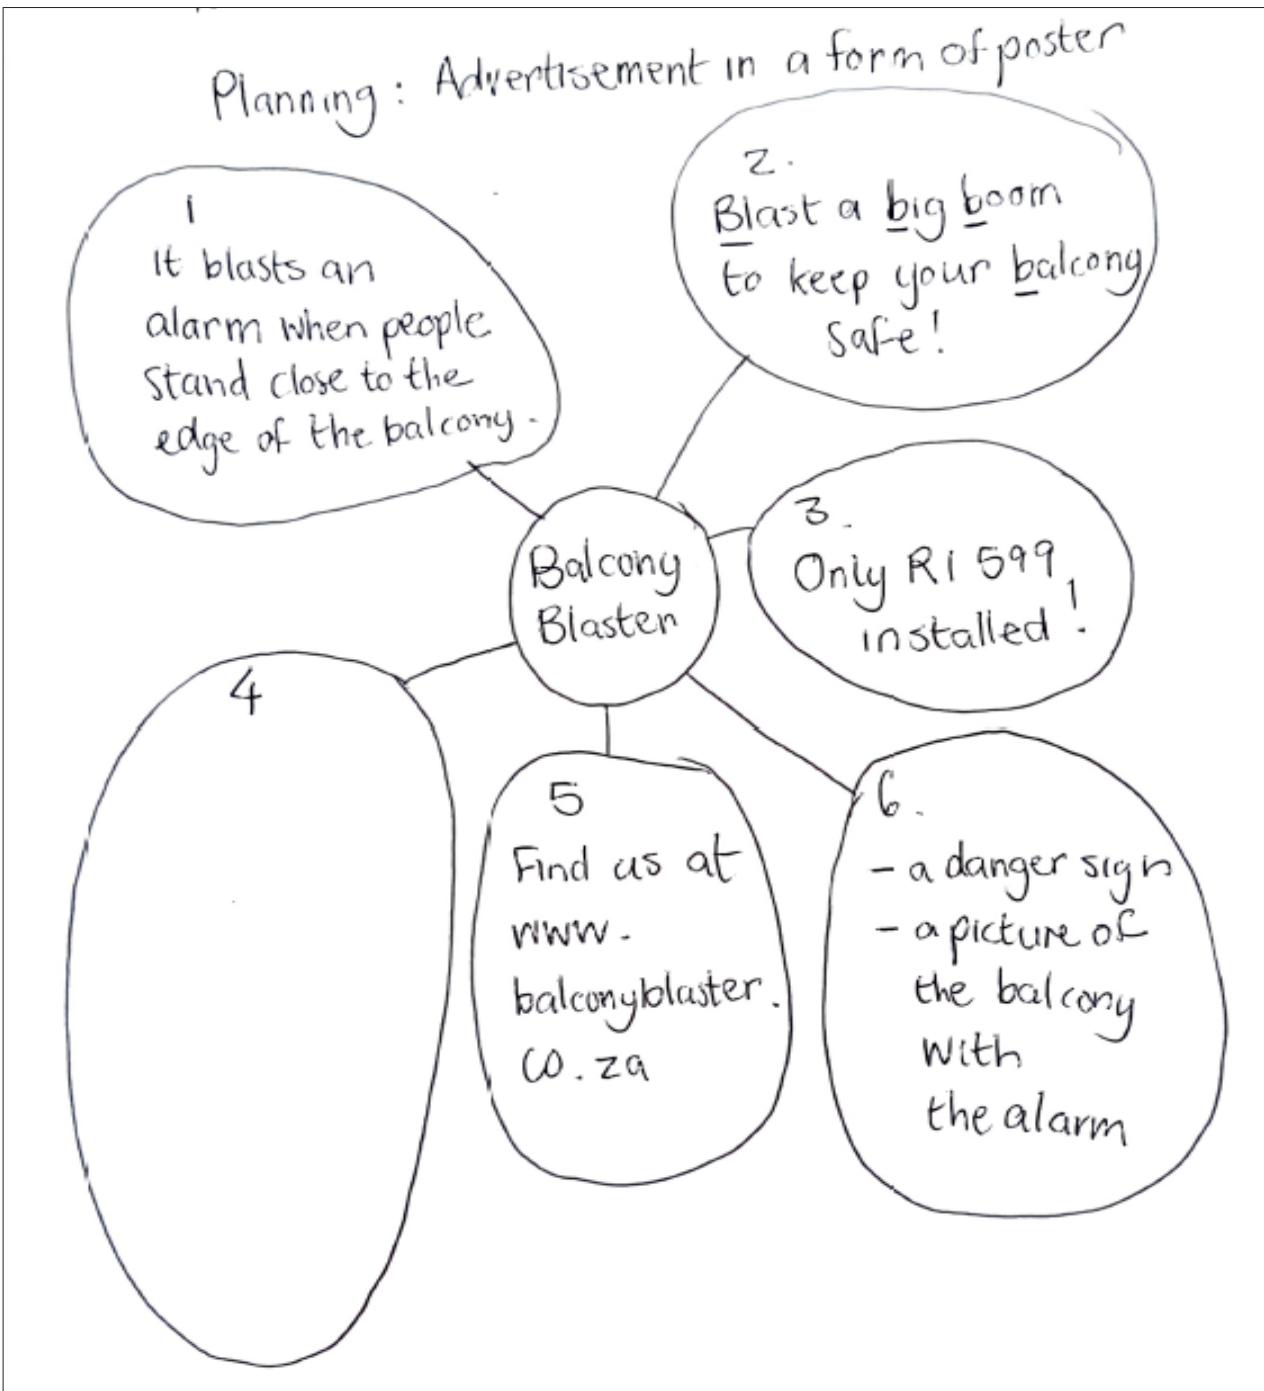 Planning: Advertisement in a form of poster
1
It blasts an
alarm when people
stand close to the
edge of the balcony.
2.
Blast a big boom
to keep your balcony
safe!
3.
Only R1 599
installed!
Balcony
Blaster
4
5
Find us at
www.
balconyblaster.
co.za
6.
- a danger sign
- a picture of
the balcony
with
the alarm